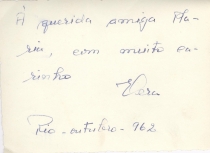 À querida amiga Ma-
ria, com muito ca-
rinho
Vera
Rio - outubro - 962